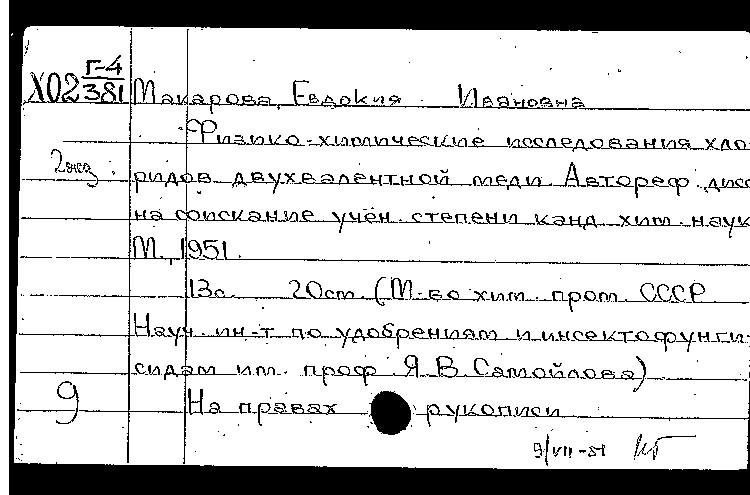 Г-4
Х02 381 Макарова, Евдокия Ивановна
Физико-химические исследования хло-
2 экз. ридов двухвалентной меди. Автореф. дисс.
на соискание учён. степени канд. хим. наук
М., 1951.
13 с. 20 см. (М-во хим. пром. СССР.
Науч. ин-т по удобрениям и инсектофунги-
сидам им. проф. Я.В. Самойлова)
9 На правах рукописи
9/VII-51